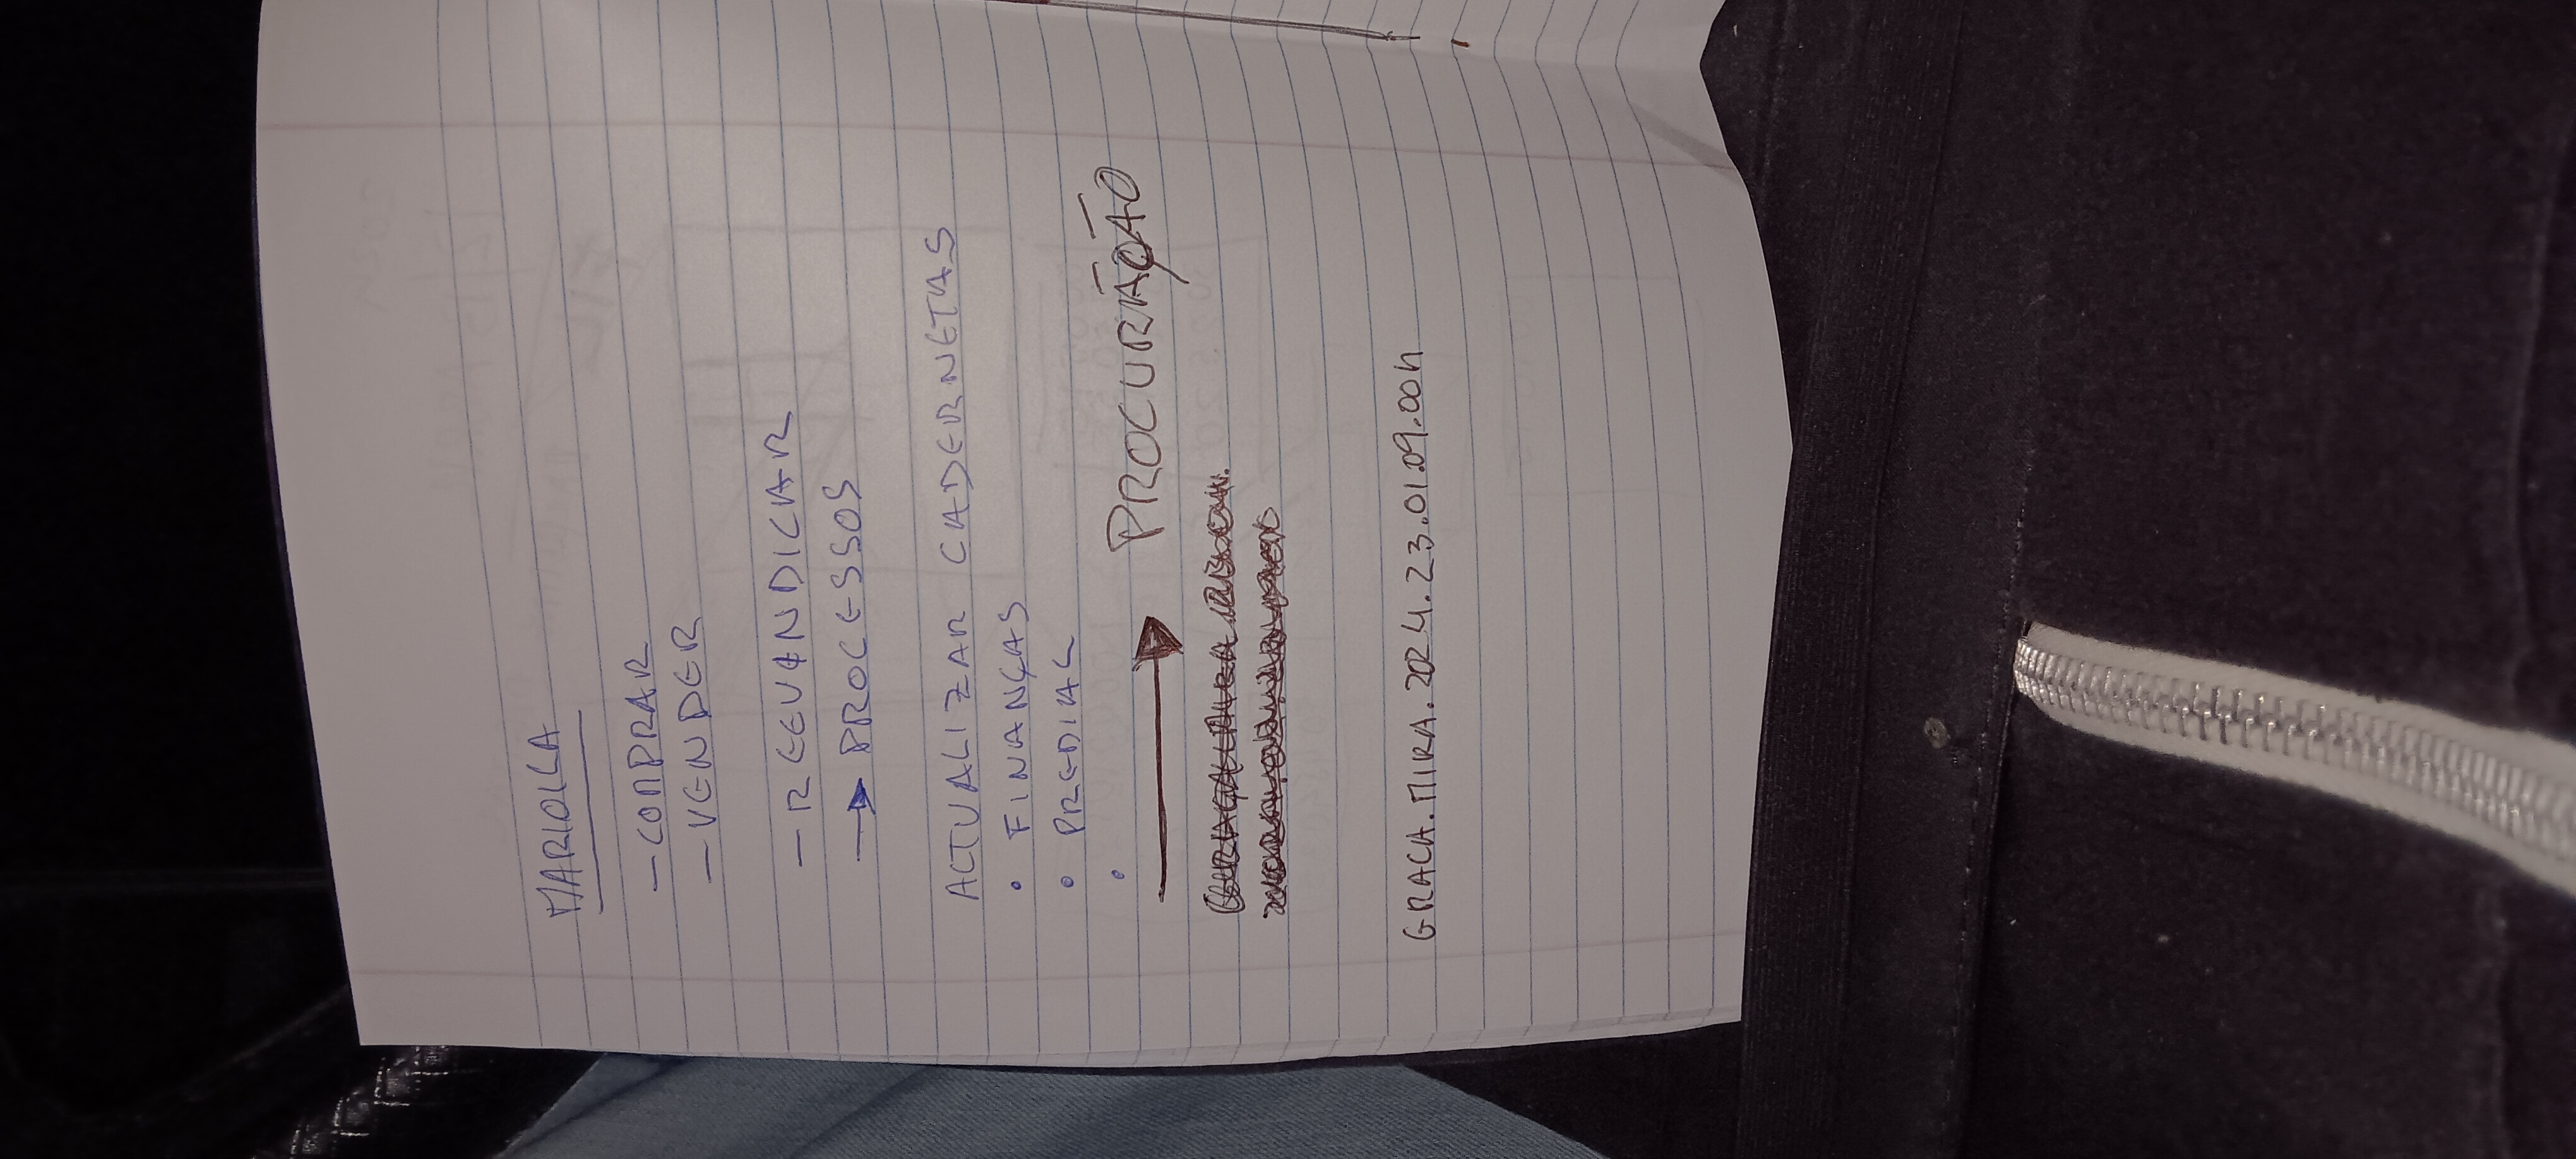 MARIOLA
- COMPRAR
- VENDER
- REEVANDICAR
→ PROCESSOS
ACTUALIZAR CADERNETAS
• FINANÇAS
• PREDIAL
•
→ PROCURAÇÃO
GRACA.MIRA.2024.23.01.09.00h